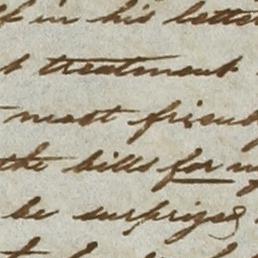 in his letter
treatment
most friend
the bills for
be surprized